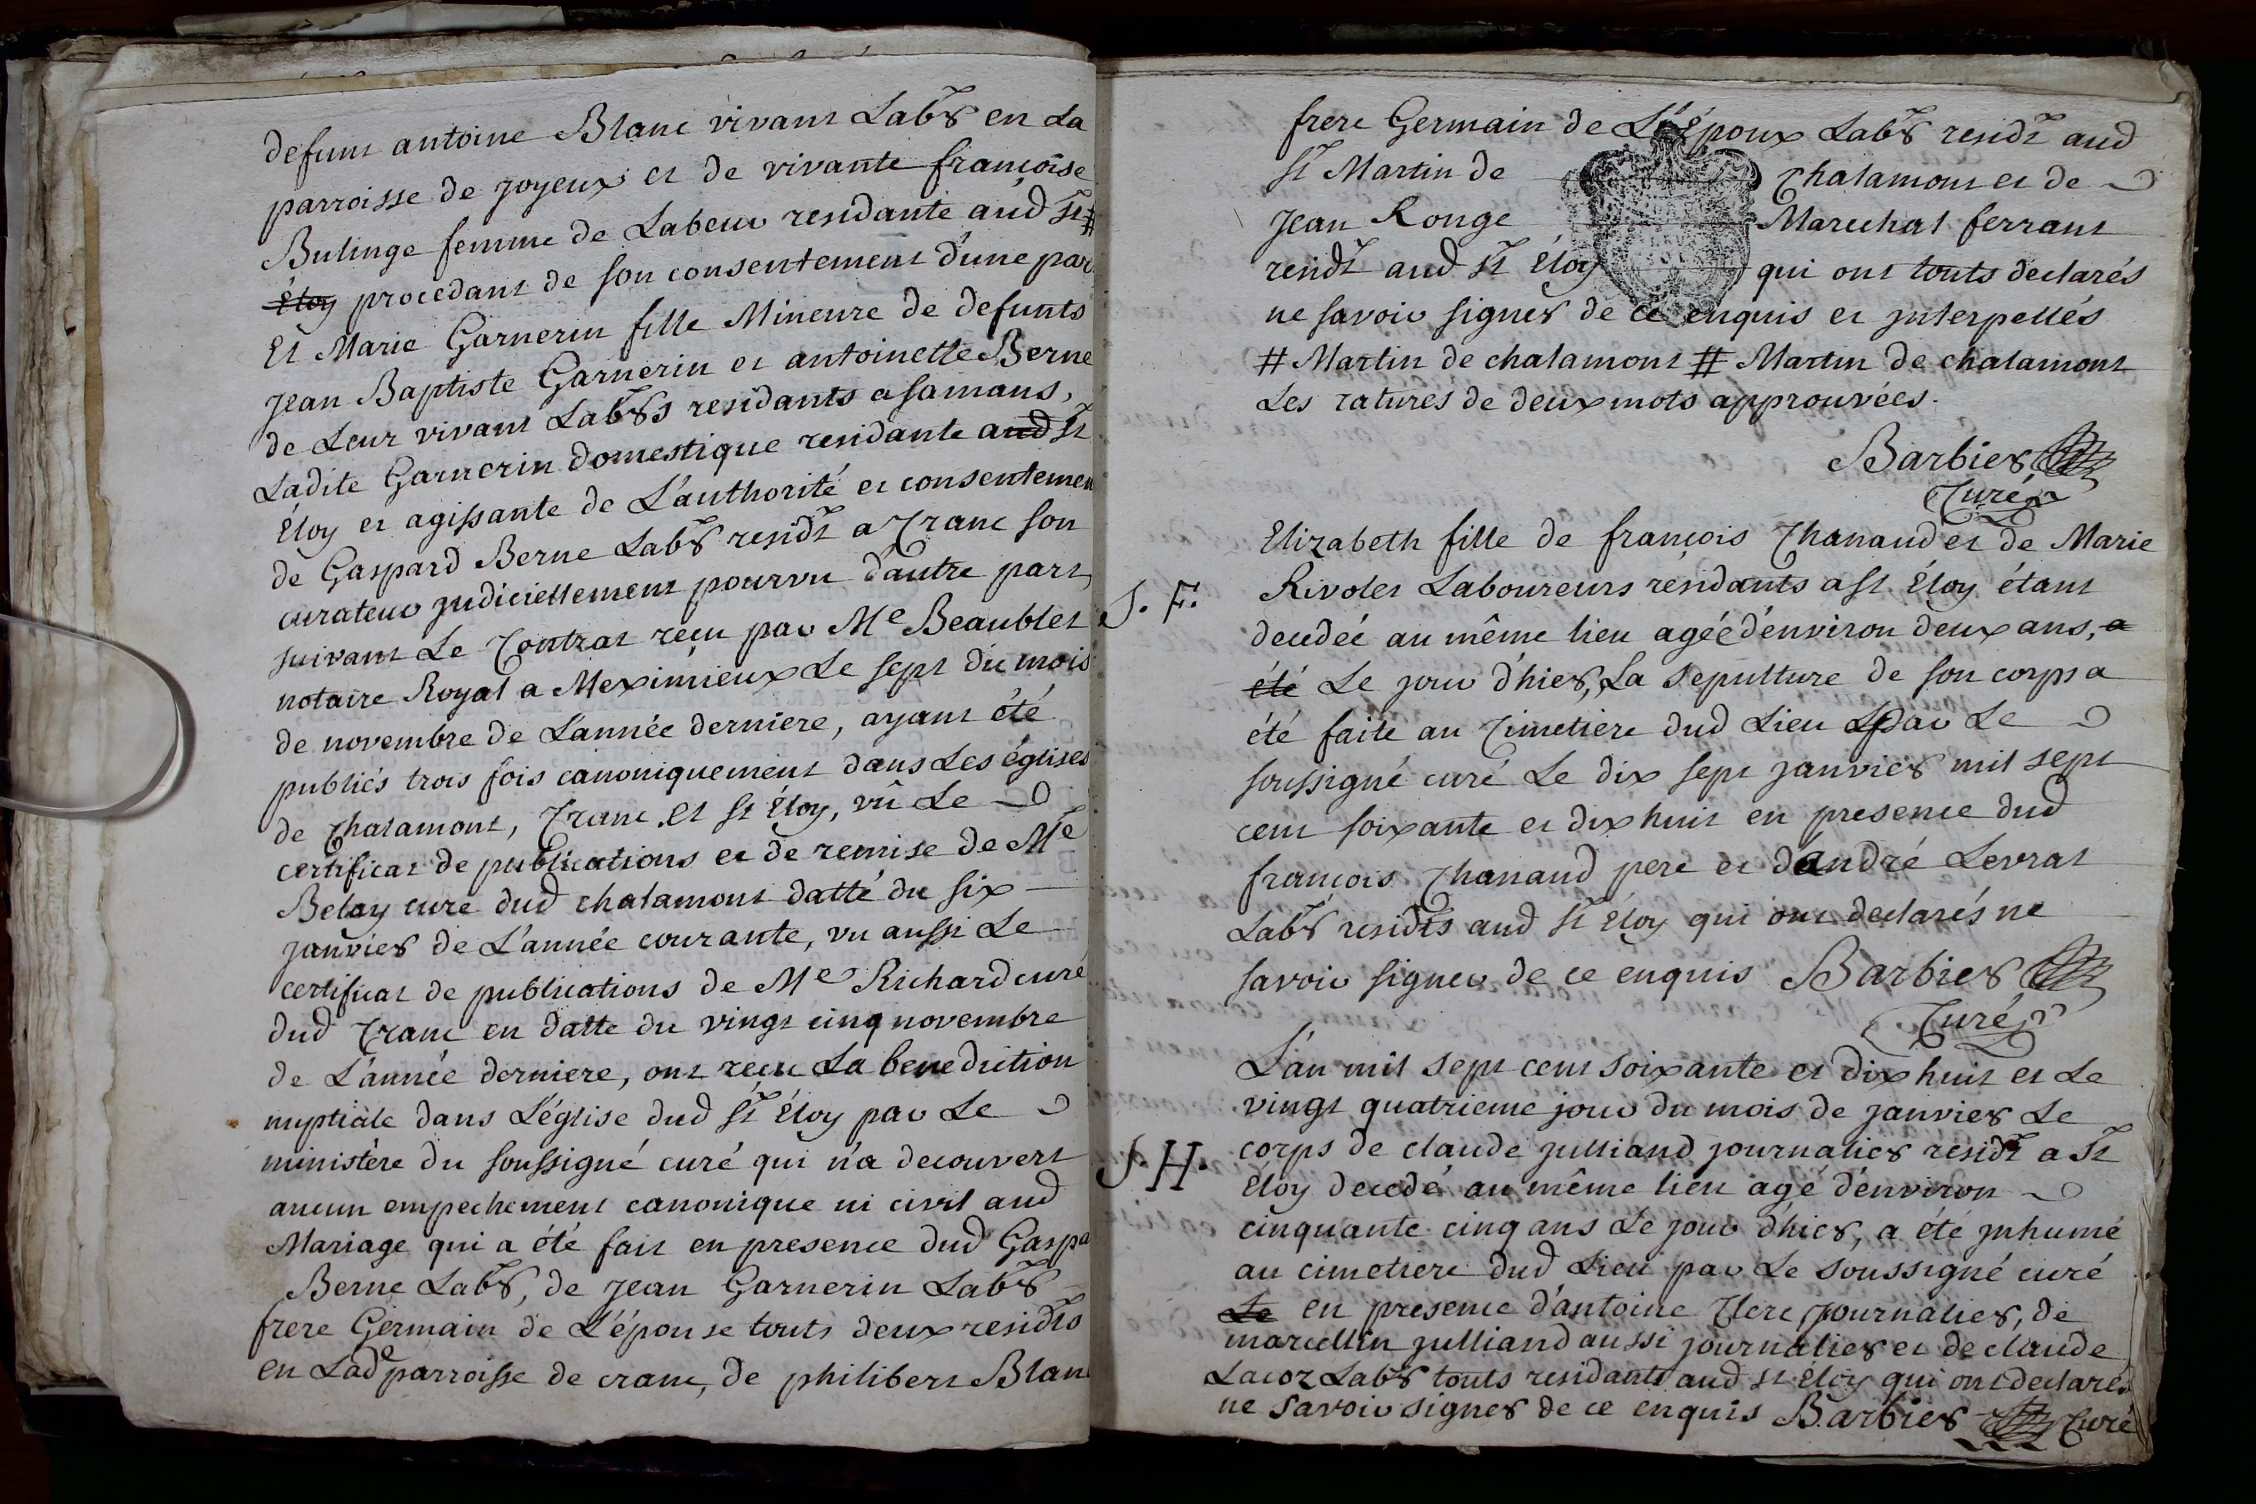 defunt antoine Blanc vivant Labr en La
parroisse de joyeux et de vivante françoise
Bulinge femme de Labeur residante aud St #
Éloy procedant de son consentement d'une par
Et Marie Garnerin fille Mineure de defunts
Jean Baptiste Garnerin et antoinette Berne
de Leur vivant Labrs residants a samans,
Ladite Garnerin domestique residante aud St
Éloy et agissante de L'authorité et consentemen
de Gaspard Berne Labr residt a Cranc son
curateur judiciellement pourvu d'autre part,
suivant Le Contrat reçu par Me Beaublet
notaire Royal a Meximieux Le sept du mois
de novembre de L'année derniere, ayant été
publiés trois fois canoniquement dans Les églises
de Chalamont, Cranc et St Éloy, vû Le
certificat de publications et de remise de Me
Belay curé dud chalamont datté du six
janvier de L'année courante, vu aussi Le
certificat de publications de Me Richard curé
dud Cranc en datte du vingt cinq novembre
de L'année derniere, ont reçu La benediction
nuptiale dans L'église dud St Éloy par Le
ministère du soussigné curé qui n'a decouvert
aucun empechement canonique ni civil aud
Mariage qui a été fait en presence dud Gaspa
Berne Labr, de Jean Garnerin Labr
frere Germain de L'épouse touts deux residts
en Lade parroisse de cranc, de philibert Blan
frere Germain de L'époux Labr residt aud
St Martin de Chalamont et de
Jean Ronge Marechal ferrant
residt aud St Éloy qui ont touts declarés
ne savoir signer de ce enquis et interpellés
# Martin de chalamont # Martin de chalamont
Les ratures de deux mots approuvées.
Barbier
Curé
Elizabeth fille de françois Chanaud et de Marie
Rivolet Laboureurs residants a St Éloy étant
S. F.
decedée au même lieu agée d'environ deux ans, a
été Le jour d'hier, La sepulture de son corps a
été faite au Cimetiere dud Lieu par Le
soussigné curé Le dix sept janvier mil sept
cent soixante et dix huit en presence dud
françois Chanaud pere et d'andré Levrat
Labrs residts aud St Éloy qui ont declarés ne
savoir signer de ce enquis Barbier
Curé
L'an mil sept cent soixante et dix huit et Le
vingt quatrieme jour du mois de janvier Le
corps de claude julliand journalier residt a St
S. H.
Éloy decedé au même lieu agé d'environ
cinquante cinq ans Le jour d'hier, a été inhumé
au cimetiere dud Lieu par Le soussigné curé
Le en presence d'antoine Clerc journalier, de
marcellin julliand aussi journalier et de claude
Lacoz Labr touts residants aud st Éloy qui ont declarés
ne savoir signer de ce enquis Barbier Curé